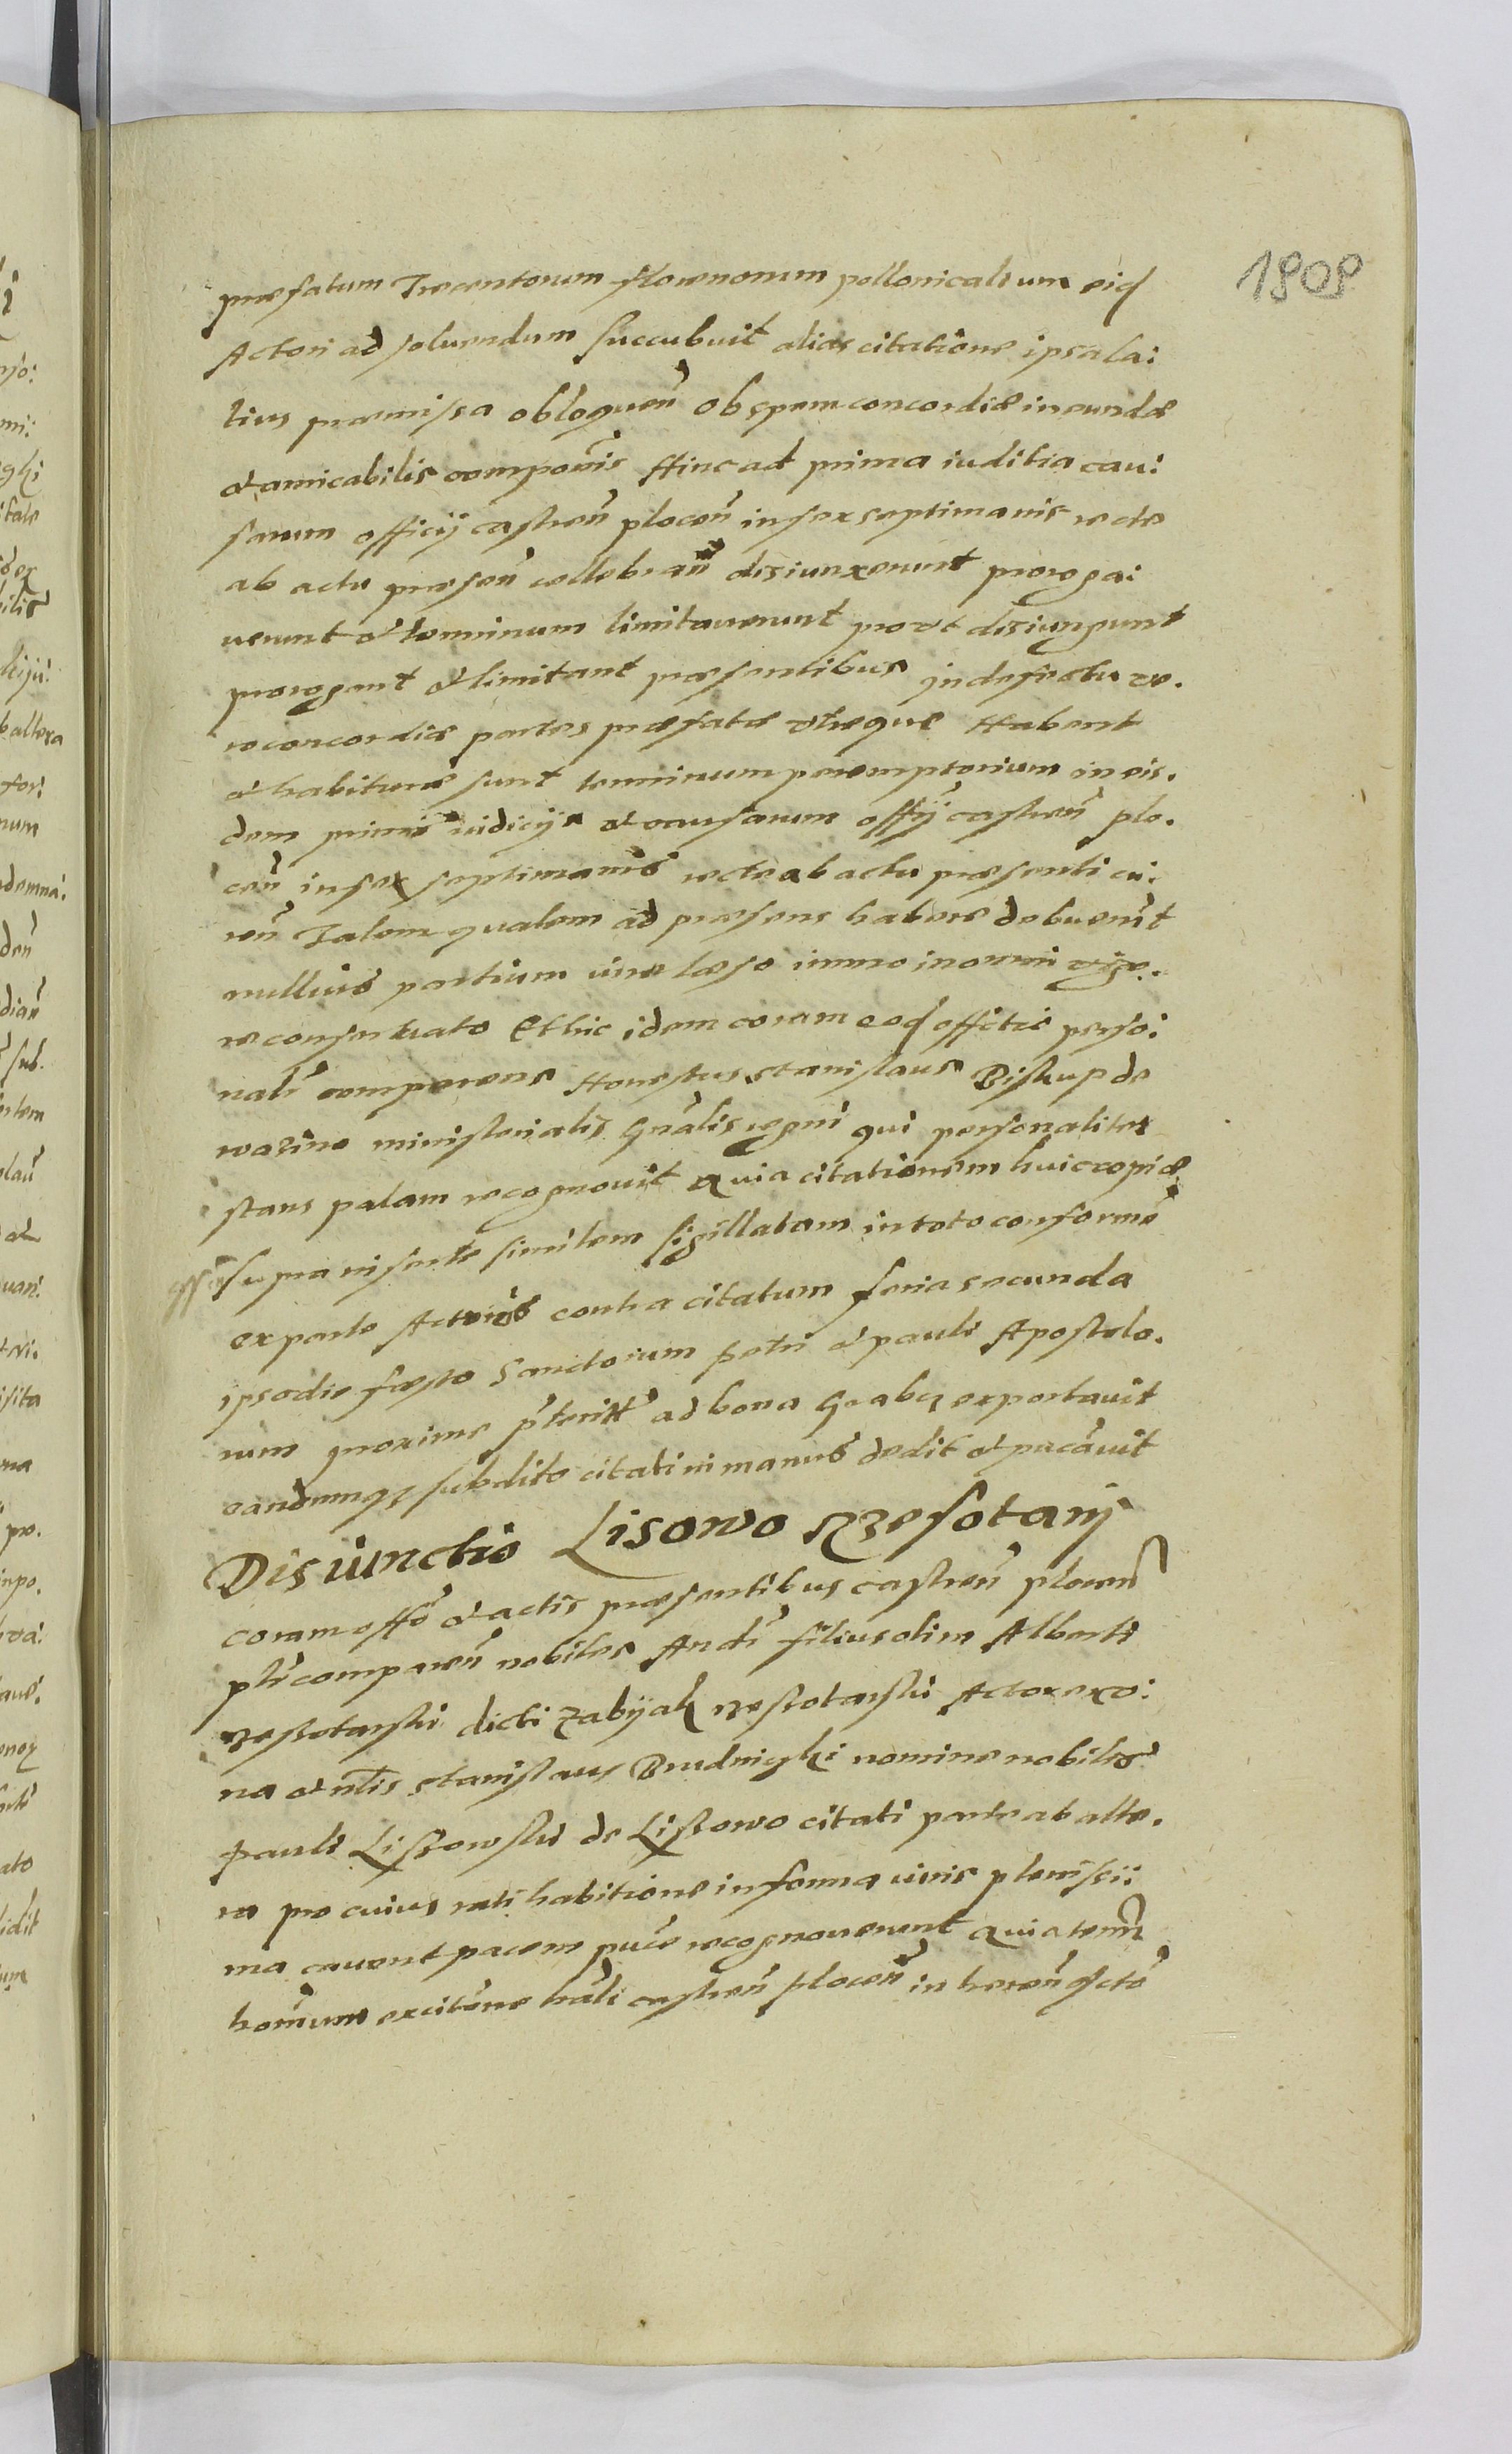 1808
præfatum Trecentorum florenorum pollonicalium eid
Actori ad soluendum succubuit alias citatione ipsa la:
tius præmissa obloquen̄ ob spem concordiæ ineundæ
et amicabilis componis Hinc ad prima iuditia cau:
sarum officij castren̄ plocen̄ in sex septimanis recte
ab actu præsen̄ cellebran̄ disiunxerunt proroga:
uerunt et terminum limitauerunt prout disiungunt
prorogant et limitant præsentibus in defectu ve.
ro concordiæ partes præfatæ utreque Habent
et habituræ sunt terminum peremptorium in eis.
dem primis iudicijs et causarum offij castren̄ plo.
cen̄ in sex septimanis recte ab actu præsenti cu:
ren̄ Talem qualem ad præsens habere debuerūt
nullius partium iure læso immo in omni
re conseruato Et hic idem coram eod offitio perso:
nalr̄ comparens Honestus Stanislaus Biskup de
wozino ministerialis gn̄alis regni qui personaliter
stans palam recognouit quia citationem huic copiæ
supra insertæ similem sigillatam in toto conformē
ex parte Actoris contra citatum feria secunda
ipso die festo Sanctorum Petri et pauli Apostolo.
rum proxime p̄terit ad bona exportauit
eandemq subdito citati in manus dedit et pucauit
Disiunctio Lisowo Rzesotarij
Coram offō et actis præsentibus castren̄ plocen̄
plr̄ comparen̄ nobiles And filius olim Alberti
rzeszotarski dicti Zabijak rzeszotarski Actor ex v:
na et nlis Stanislaus Brudnigki nomine nobilis
Pauli Liszowski de Liszowo citati parte ab alte.
ra pro cuius rati habitione in forma iuris plenissi:
ma cauent pacem puce recognouerunt quia term̄
hōrum ex citōne hali castren̄ plocen̄ in heren̄ Actō